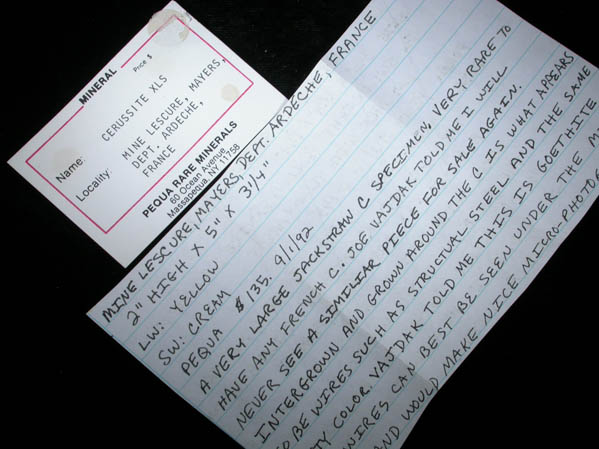 MINERAL
Price $
Name: CERUSSITE XLS
Locality: MINE LESCURE, MAYERS,
DEPT. ARDECHE,
FRANCE
PEQUA RARE MINERALS
60 Ocean Avenue
Massapequa, NY 11758
MINE LESCURE, MAYERS, DEPT. ARDECHE, FRANCE
2" HIGH X 5" X 3 1/4"
LW: YELLOW
SW: CREAM
PEQUA $135. 9/1/92
A VERY LARGE JACKSTRAW C SPECIMEN, VERY RARE TO
HAVE ANY FRENCH C. JOE VAJDAK TOLD ME I WILL
NEVER SEE A SIMILIAR PIECE FOR SALE AGAIN.
INTERGROWN AND GROWN AROUND THE C IS WHAT APPEARS
TO BE WIRES SUCH AS STRUCTUAL STEEL AND THE SAME
COLOR. VAJDAK TOLD ME THIS IS GOETHITE
WIRES CAN BEST BE SEEN UNDER THE
AND WOULD MAKE NICE MICRO-PHOTO